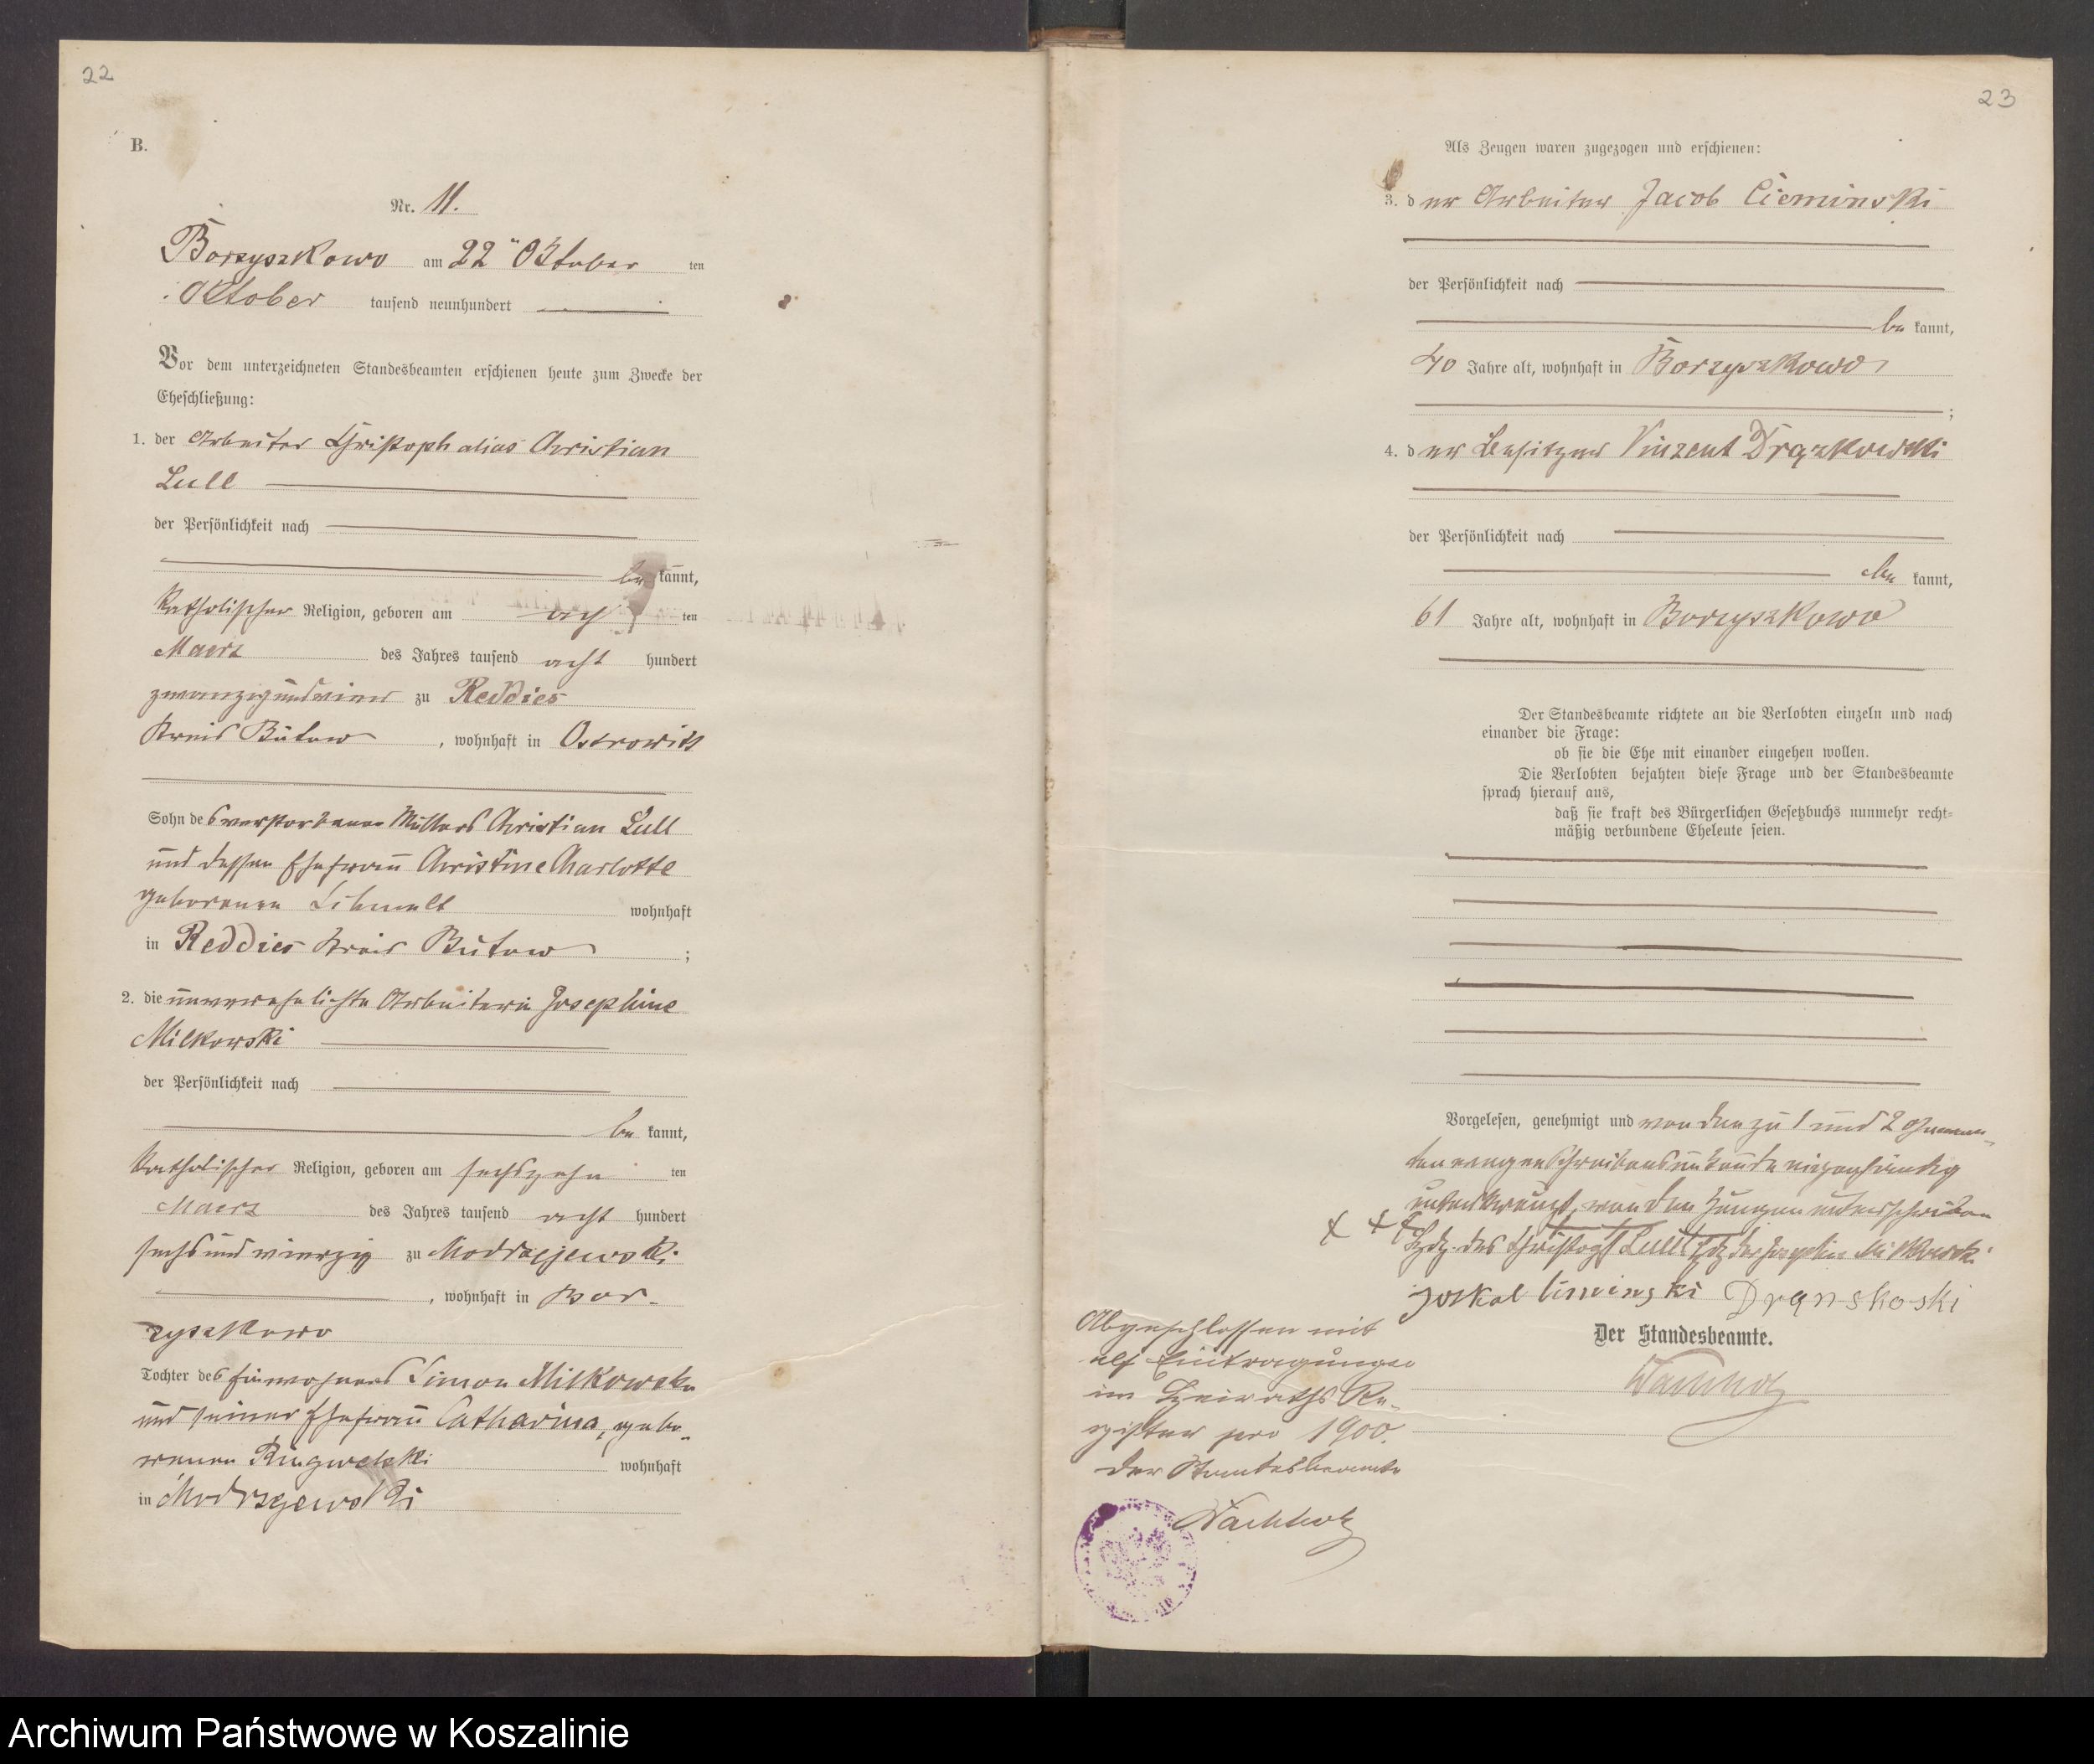 22
B.
Nr. 11.
Borzyszkowo am 22ten Oktober ten
Oktober tausend neunhundert
Vor dem unterzeichneten Standesbeamten erschienen heute zum Zwecke der
Eheschließung:
1. der Arbeiter Christoph alias Christian
Lull
der Persönlichkeit nach
be kannt,
katholischer Religion, geboren am acht ten
Maerz des Jahres tausend acht hundert
zu Reddies
Kreis Bütow, wohnhaft in Ostrowitt
Sohn des verstorbenen Müllers Christian Lull
und dessen Ehefrau Christine Charlotte
geborenen wohnhaft
in Reddies Kreis Bütow ;
2. die unverehelichte Arbeiterin Josephine
Milkowski
der Persönlichkeit nach
be kannt,
katholischer Religion, geboren am sechszehn ten
Maerz des Jahres tausend acht hundert
sechs und vierzig zu Modrzejewski
, wohnhaft in Bor-
zyszkowo
Tochter des Einwohners Simon Milkowski
und seiner Ehefrau Catharina, gebo-
renen Ringwelski wohnhaft
in Modrzejewski
23
Als Zeugen waren zugezogen und erschienen:
3. der Arbeiter Jacob Cieminski
der Persönlichkeit nach
be kannt,
40 Jahre alt, wohnhaft in Borzyszkowo
;
4. der Besitzer Vinzent Drązkowski
der Persönlichkeit nach
be kannt,
61 Jahre alt, wohnhaft in Borzyszkowo
Der Standesbeamte richtete an die Verlobten einzeln und nach
einander die Frage:
ob sie die Ehe mit einander eingehen wollen.
Die Verlobten bejahten diese Frage und der Standesbeamte
sprach hierauf aus,
daß sie kraft des Bürgerlichen Gesetzbuchs nunmehr recht-
mäßig verbundene Eheleute seien.
Vorgelesen, genehmigt und von den zu 1 und 2 Genann-
ten wegen Schreibensunkunde eigenhändig
unterkreuzt, von den Zeugen unterschrieben
+ + +
Hdz. des Christoph Lull Hdz der Josephine Milkowski
Der Standesbeamte.
Wachholz
Abgeschlossen mit
elf Eintragungen
im Heiraths Re-
gister pro 1900.
Der Standesbeamte
Wachholz
Archiwum Państwowe w Koszalinie